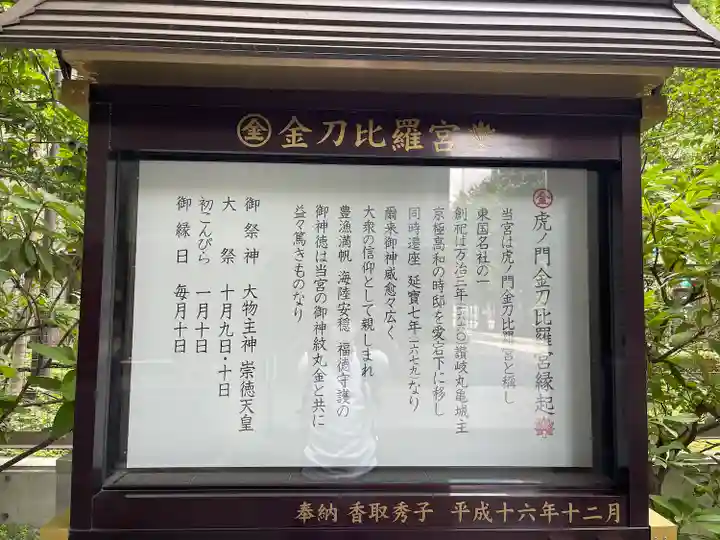 金 金刀比羅宮
金 虎ノ門金刀比羅宮縁起
当宮は虎ノ門金刀比羅宮と稱し
東国名社の一
創祀は万治三年一六六〇讃岐丸亀城主
京極高和の時邸を愛宕下に移し
同時遷座 延寶七年一六七九なり
爾来御神威愈々広く
大衆の信仰として親しまれ
豊漁満帆 海陸安穏 福徳守護の
御神徳は当宮の御神紋丸金と共に
益々篤きものなり
御祭神 大物主神 崇徳天皇
大祭 十月九日・十日
初こんぴら 一月十日
御縁日 毎月十日
奉納 香取秀子 平成十六年十二月